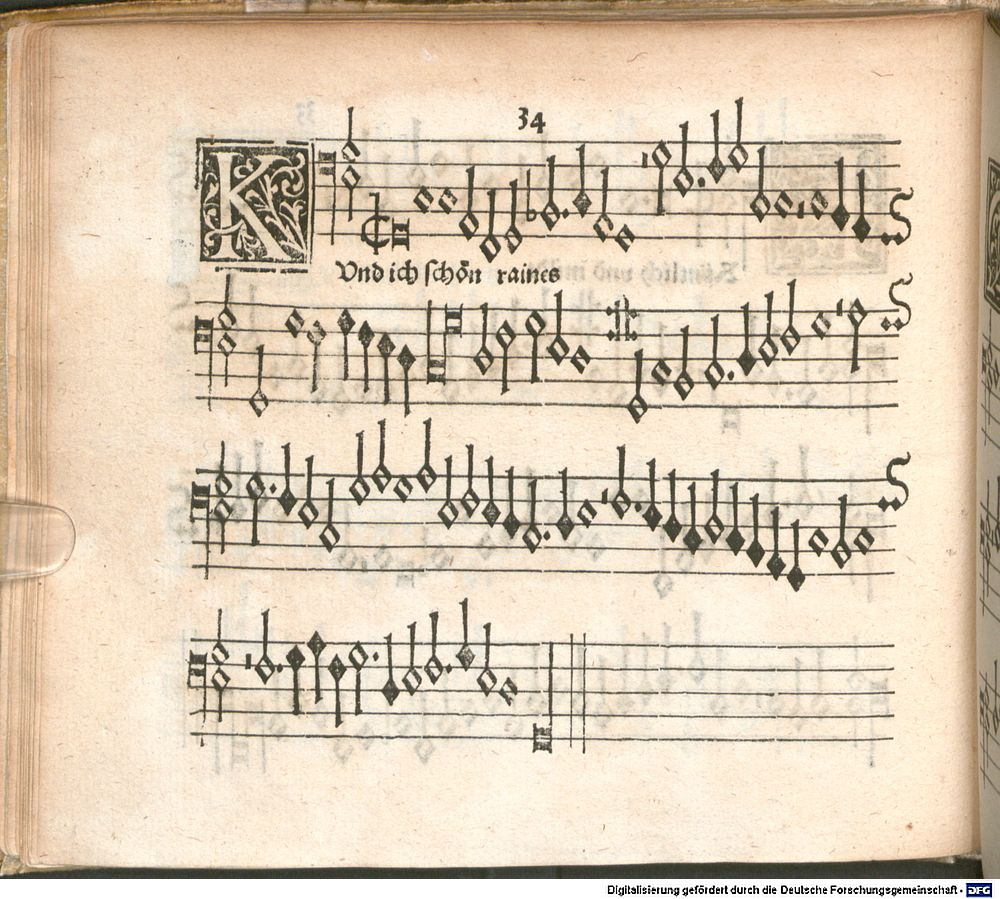 34
K
Vnd ich schön raines
Digitalisierung gefördert durch die Deutsche Forschungsgemeinschaft - DFG